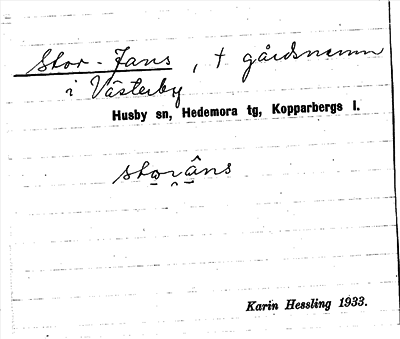 Stor-Jans, † gårdsnamn
i Västerby
Husby sn, Hedemora tg, Kopparbergs l.
storâns
Karin Hessling 1933.